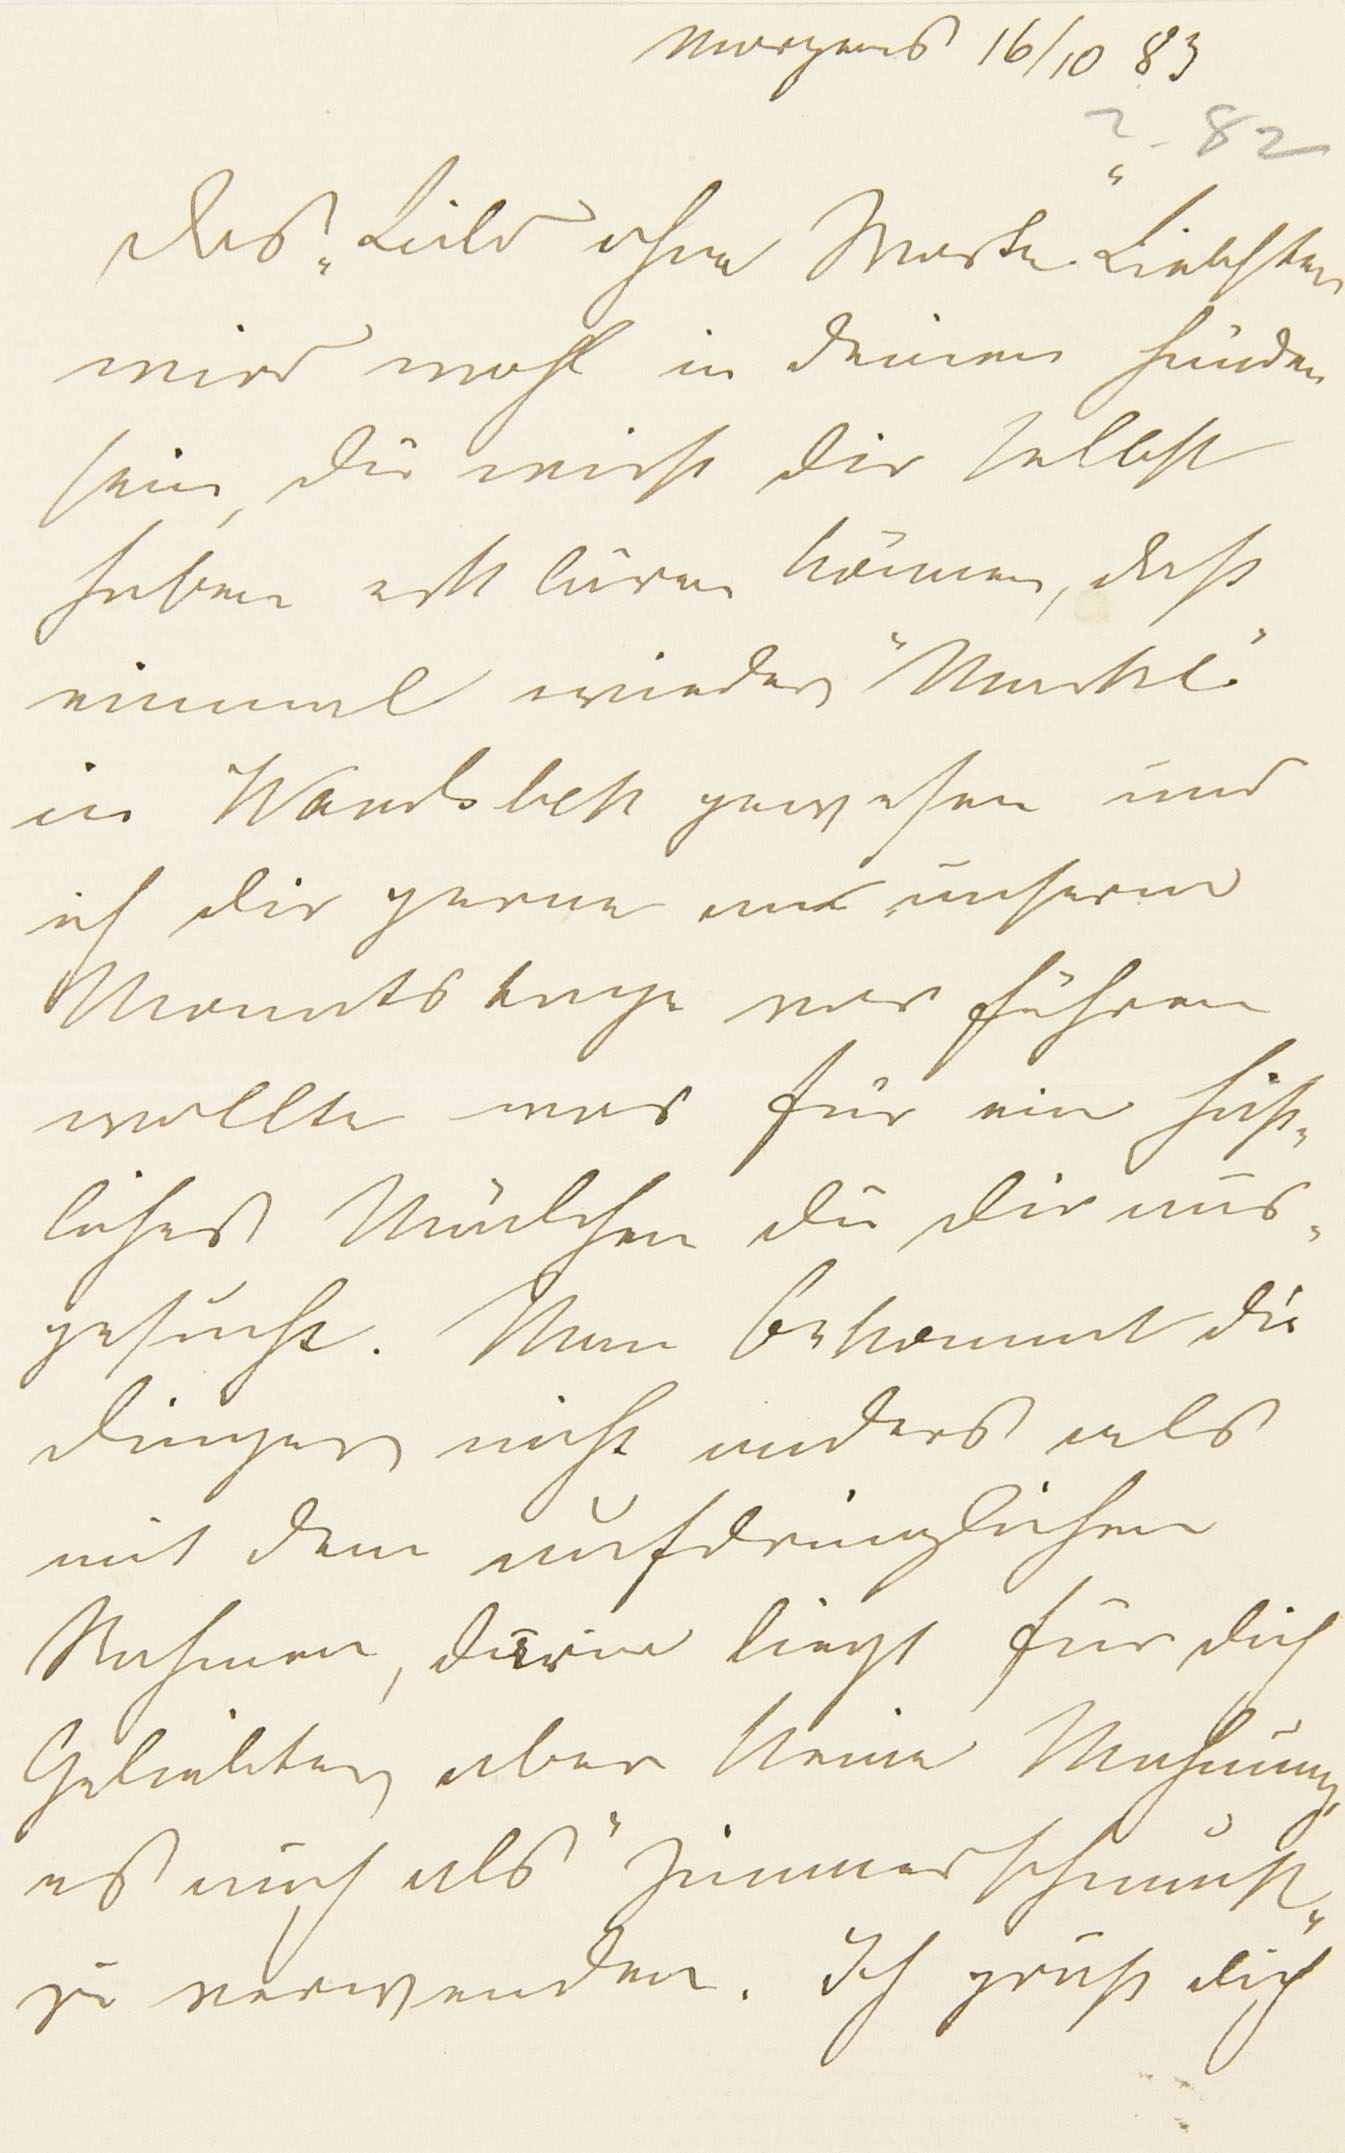 Morgens 16/10 83
? 82
Das „Lied ohne Worte“ Liebster
wird wohl in deinen Händen
sein, du wirst dir selbst
haben erklären können, daß
einmal wieder "Markt"
in Wandsbek gewesen und
ich dir gerne am unserm
Monatstage vor führen
wollte was für ein häß-
liches Mädchen du dir aus-
gesucht. Man bekommt die
Dinger nicht anders als
mit dem aufdringlichen
Rahmen, darin liegt für dich
Geliebter aber keine Mahnung,
es auch als "Zimmerschmuck"
zu verwenden. Ich grüße dich